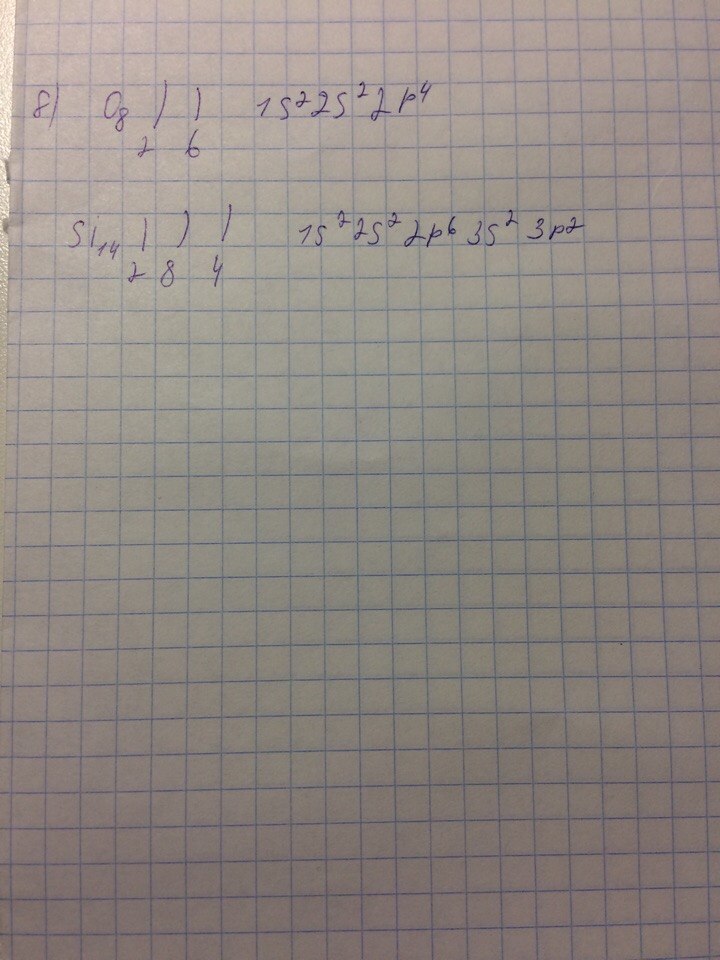 8) O₈ ) ) 1s²2s²2p⁴
2 6
Si₁₄ ) ) ) 1s²2s²2p⁶3s²3p²
2 8 4